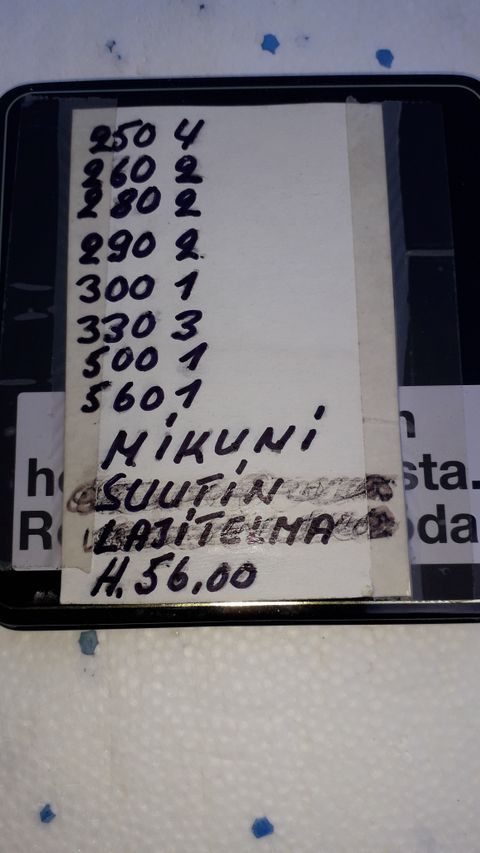 250 4
260 2
280 2
290 2
300 1
330 3
500 1
560 1
MiKUNi
SUUTiN
LAJiTELMA
H. 56,00
sta.